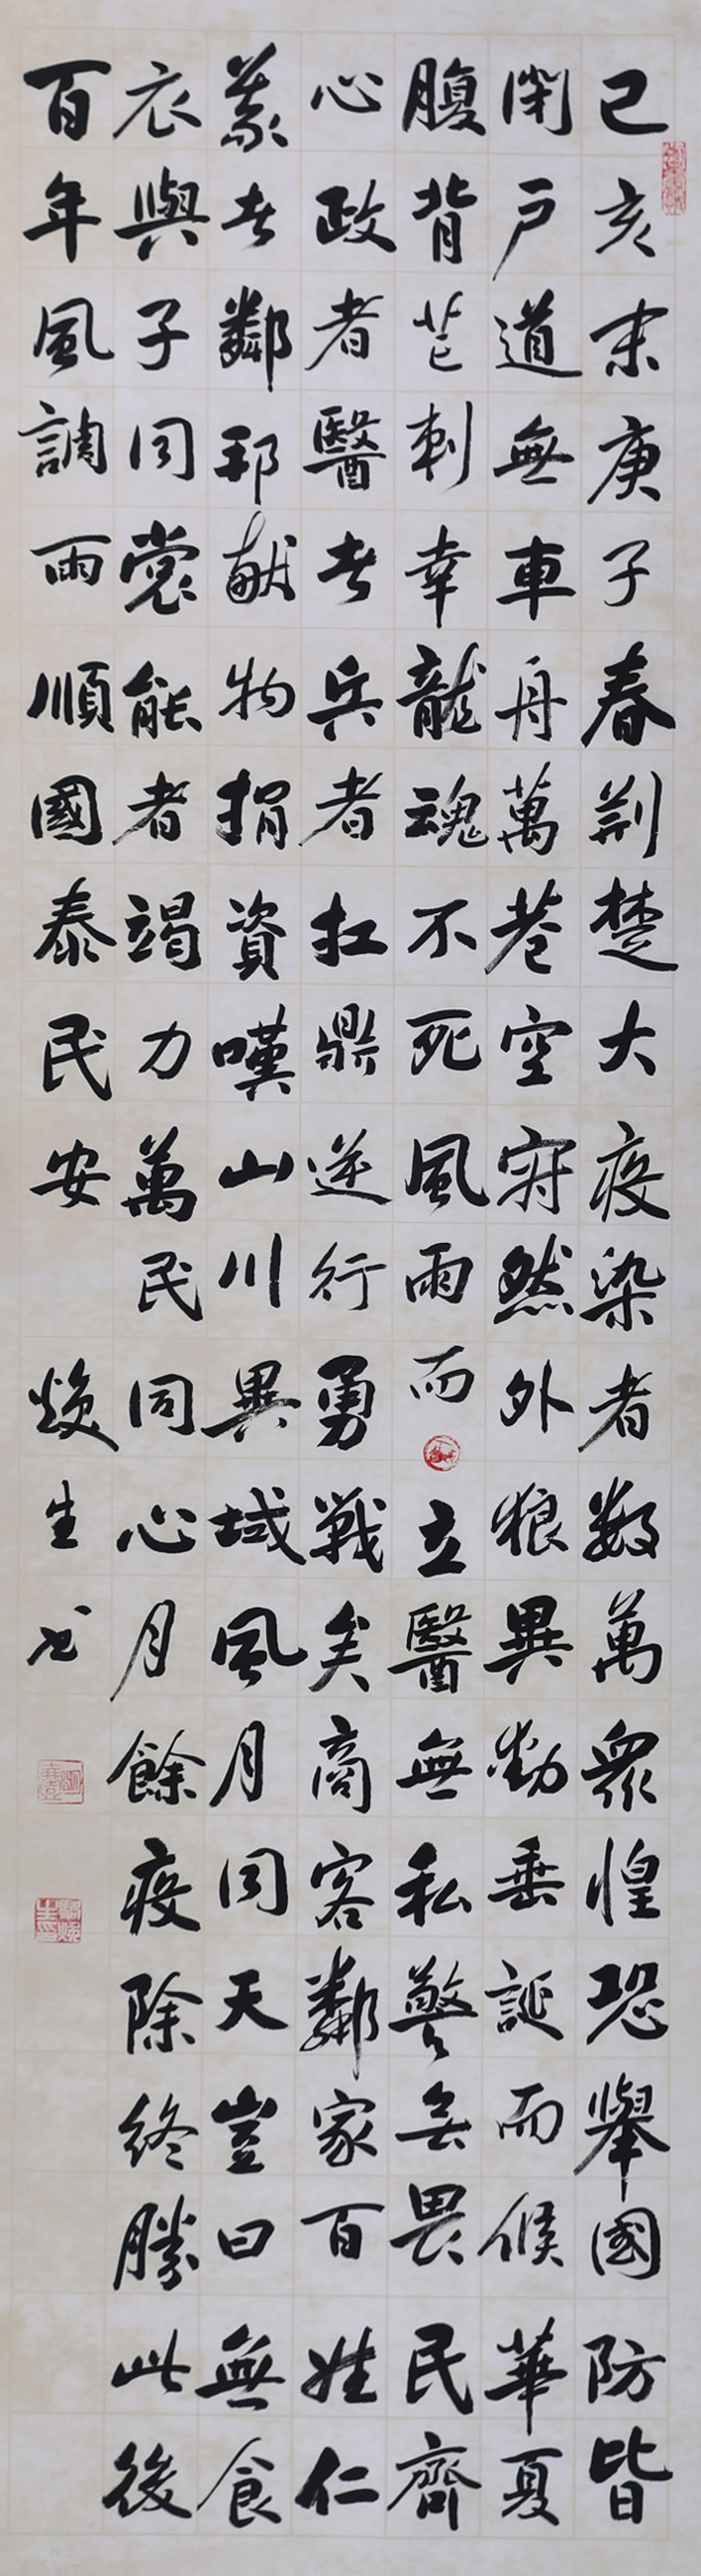 己亥末庚子春荆楚大疫染者數萬眾惶恐舉國防皆
閉戶道無車舟萬巷空寂然外狼異動垂誕而候華夏
腹背芒刺幸龍魂不死風雨而立醫無私警無畏民齊
心政者醫者兵者扛鼎逆行勇戰矣商客鄰家百姓仁
義者鄰邦献物捐資嘆山川異域風月同天豈曰無食
衣與子同裳能者竭力萬民同心月餘疫除終勝此後
百年風調雨順國泰民安 煥生书